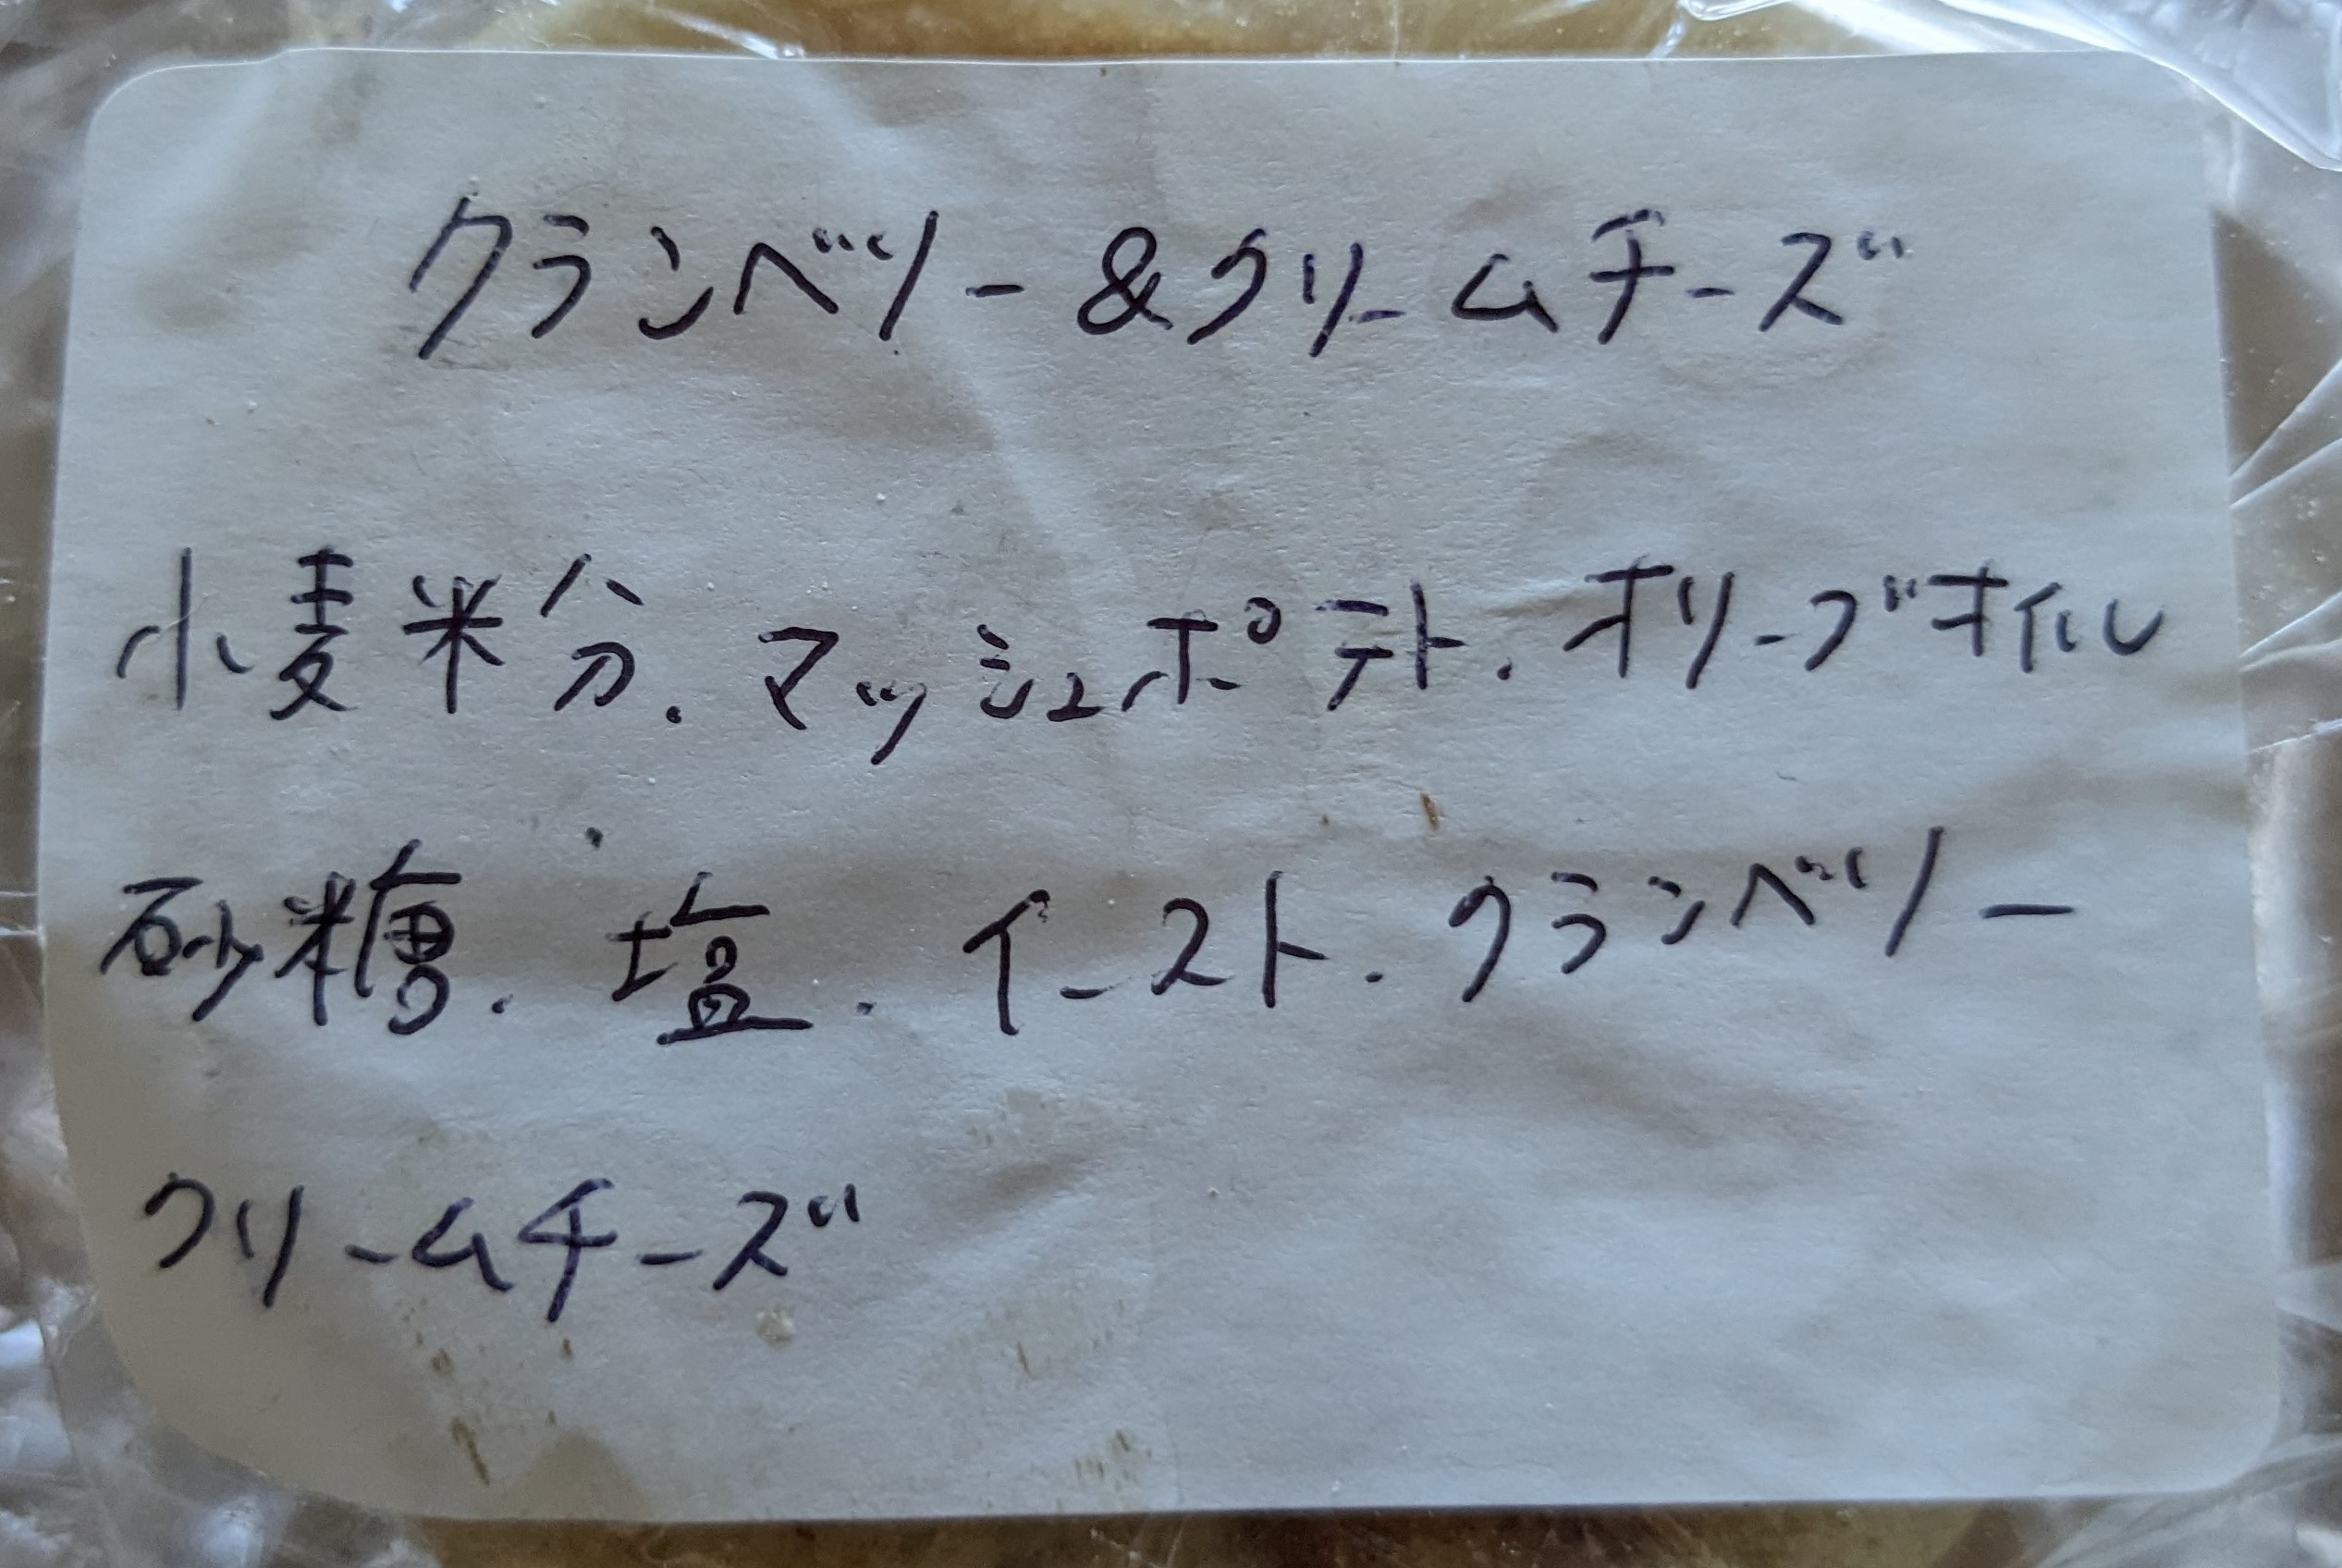 クランベリー&クリームチーズ
小麦粉.マッシュポテト.オリーブオイル
砂糖.塩.イースト.クランベリー
クリームチーズ